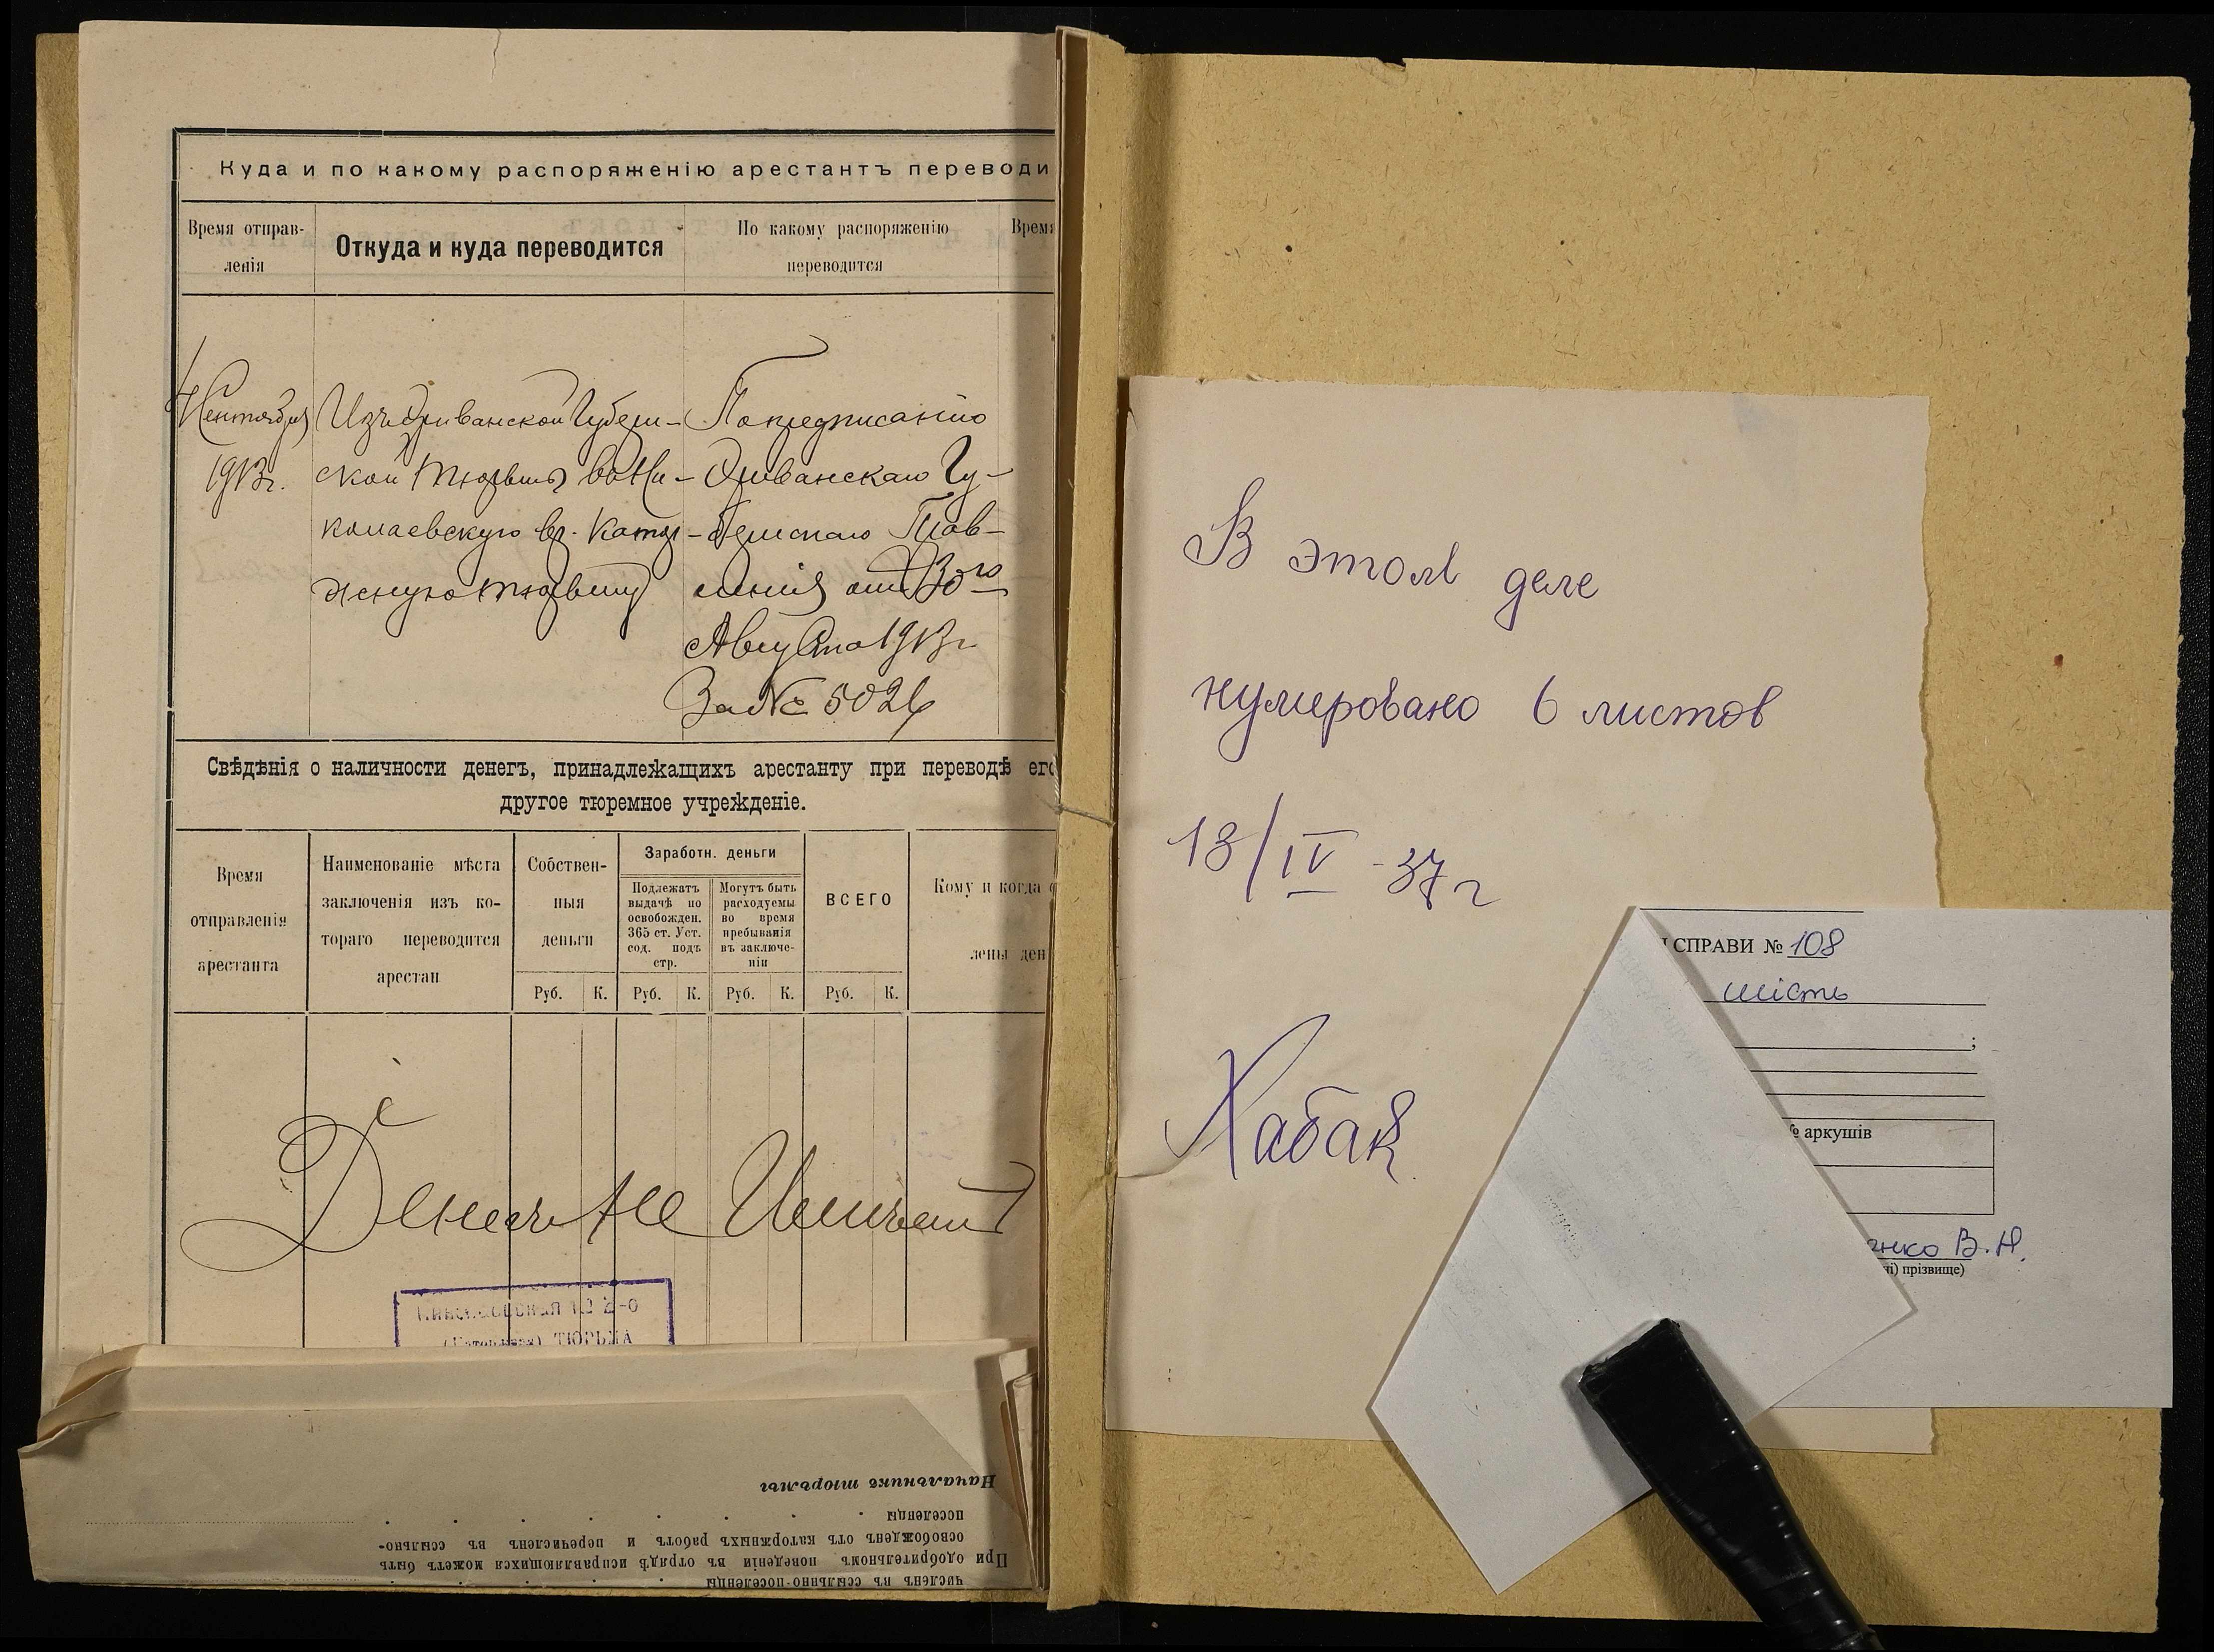 Куда и по какому распоряженію арестантъ переводи
Время отправ-
ленія
Откуда и куда переводится
По какому распоряженію
переводится
Время
4 Сентября
1913г.
Изъ Эриванской Губерн-
ской тюрьмы во Ни-
колаевскую вр. Катор-
жную тюрьму
По предписанію
Эриванскаго Гу-
бернскаго Прав-
ленія отъ 30го
Августа 1913г
За № 5026
Свѣдѣнія о наличности денегъ, принадлежащихъ арестанту при переводѣ его
другое тюремное учрежденіе.
Время
отправленія
арестанта
Наименованіе мѣста
заключенія изъ ко-
тораго переводится
арестан
Собствен-
ныя
деньги
Заработн. деньги
Подлежатъ
выдачѣ по
освобожден.
365 ст. Уст.
сод. подъ
стр.
Могутъ быть
расходуемы
во время
пребыванія
въ заключе-
ніи
ВСЕГО
Кому и когда
лены ден
Руб. К. Руб. К. Руб. К. Руб. К.
Денегъ не
ТЮРЬМА
Начальникъ тюрьмы
поселенцы
освобожденъ отъ каторжныхъ работъ и перечисленъ въ ссыльно-
При одобрительномъ поведеніи въ отрядѣ исправляющихся можетъ быть
численъ въ ссыльно-поселенцы
В этом деле
нумеровано 6 листов
13/IV-37г
Хабак
СПРАВИ № 108
шість
;
№ аркушів
енко В.Н.
ні) прізвище)